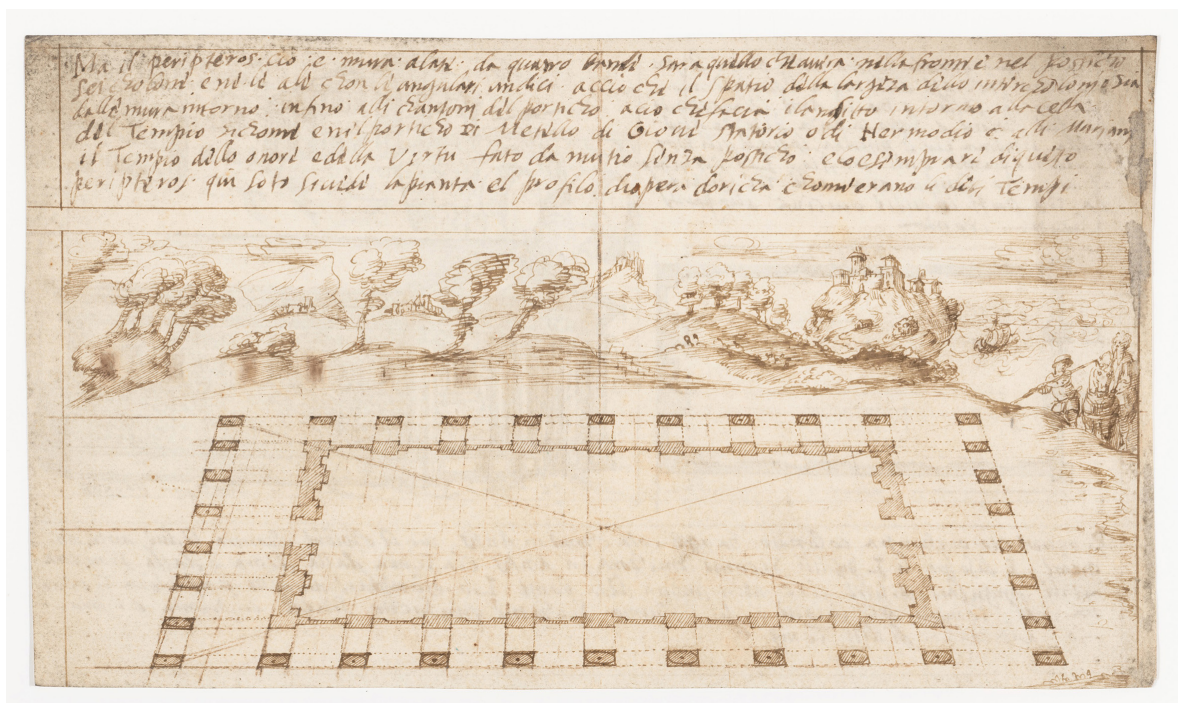 Ma il peripteros cio e mura alate da quatro bande sara quello che avera nella fronte e nel posticho
sei cholone e ne le ali chon li angulari undici accio che il spatio della largeza dello interzcolomne sia
dalle mura intorno infino alli chantoni del porticho accio che facia il andito intorno a la cella
del Tempio sichome e nel porticho di Metello di Giove Statorio o di Hermodio e alli
il Tempio dello onore e della Virtu fato da mutio senza posticho e lo esimprare di questo
peripteros qui soto si vede la pianta el profilo di opera doricha chome erano li diti Tempi